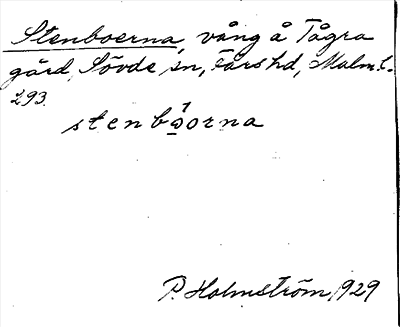 Stenboerna, vång å Tågra
gård, Sövde sn, Färs hd, Malm. l.
293.
stenboorna
P. Holmström, 1929